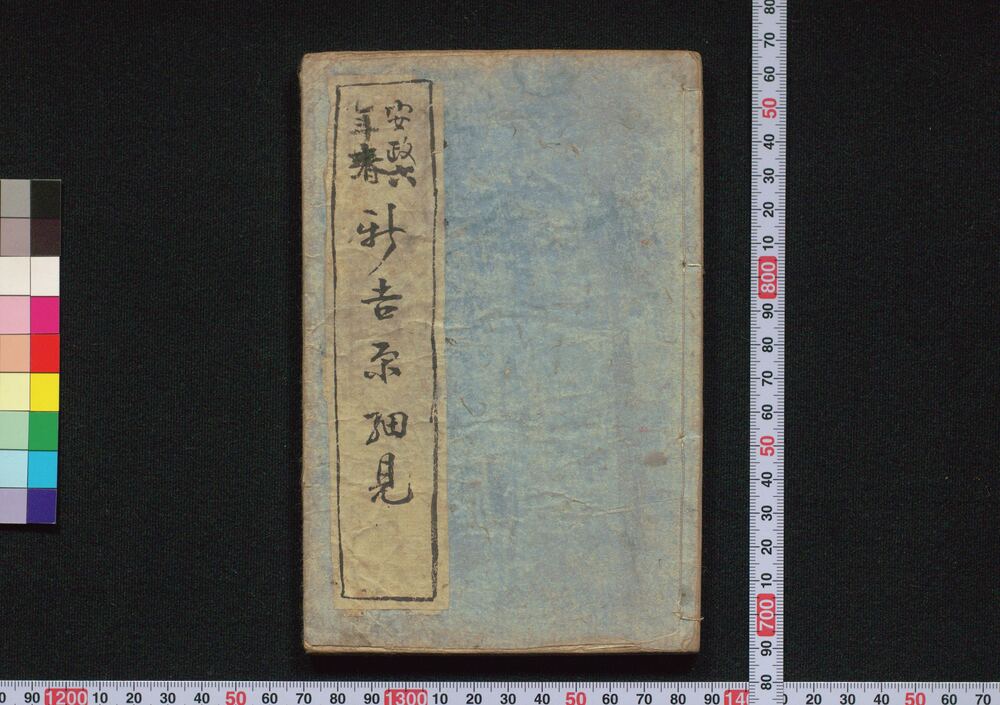 安政六
年春
新吉原細見
80
70
60
50
40
30
20
10
800
90
80
70
60
50
40
30
20
10
700
90
80
0 90 1200 10 20 30 40 50 60 70 80 90 1300 10 20 30 40 50 60 70 80 90 14 20 30 40 50 60 70